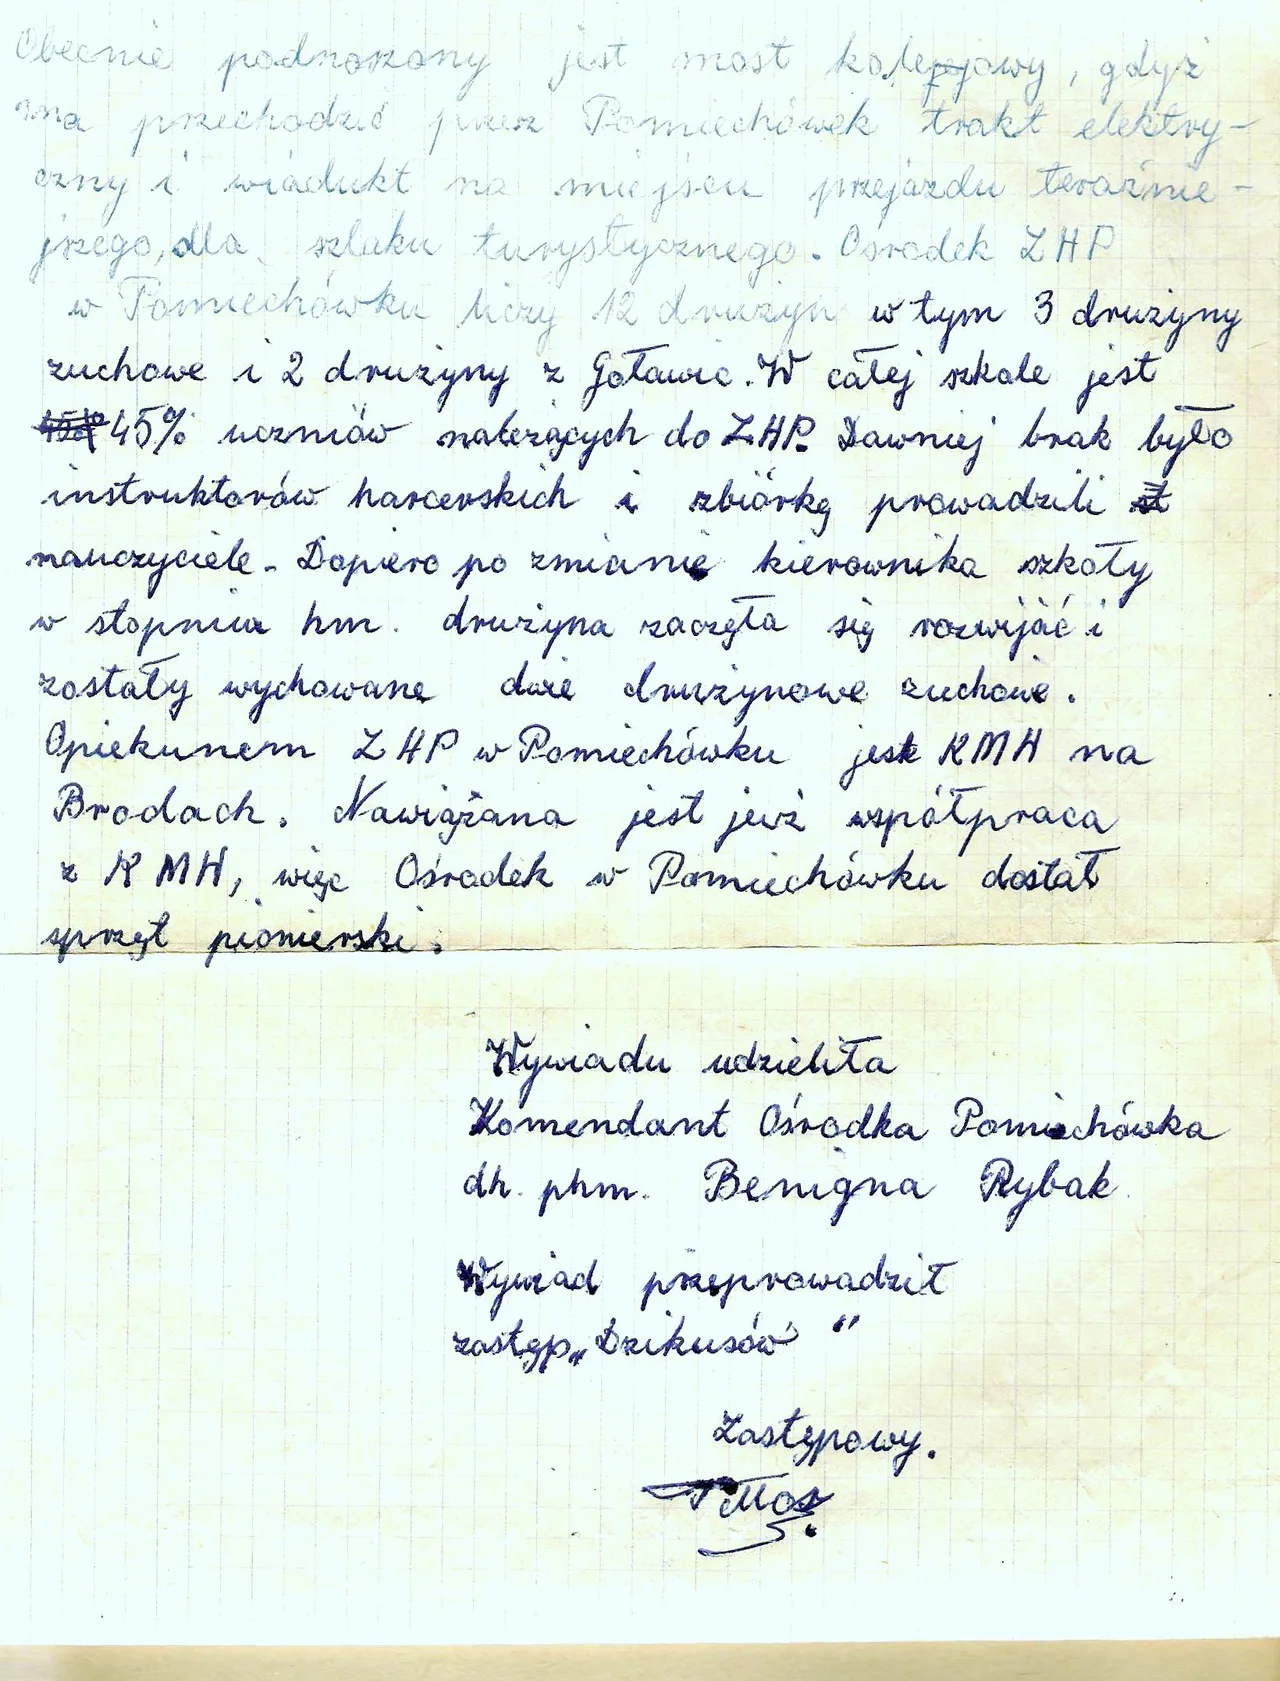 Obecnie podnoszony jest most kolejowy, gdyż
ma przechodzić przez Pomiechówek trakt elektry-
czny i wiadukt na miejscu przejazdu teraźnie-
jszego, dla szlaku turystycznego. Ośrodek ZHP
w Pomiechówku liczy 12 drużyn w tym 3 drużyny
zuchowe i 2 drużyny z Goławic. W całej szkole jest
45% uczniów należących do ZHP. Dawniej brak było
instruktorów harcerskich i zbiórkę prowadzili
nauczyciele. Dopiero po zmianie kierownika szkoły
w stopniu hm. drużyna zaczęła się rozwijać i
zostały wychowane dwie drużynowe zuchowe.
Opiekunem ZHP w Pomiechówku jest KMH na
Brodach. Nawiązana jest już współpraca
z KMH, więc Ośrodek w Pomiechówku dostał
sprzęt pionierski.
Wywiadu udzieliła
Komendant Ośrodka Pomiechówka
dh. phm. Benigna Rybak
Wywiad przeprowadził
zastęp „Dzikusów"
Zastępowy.